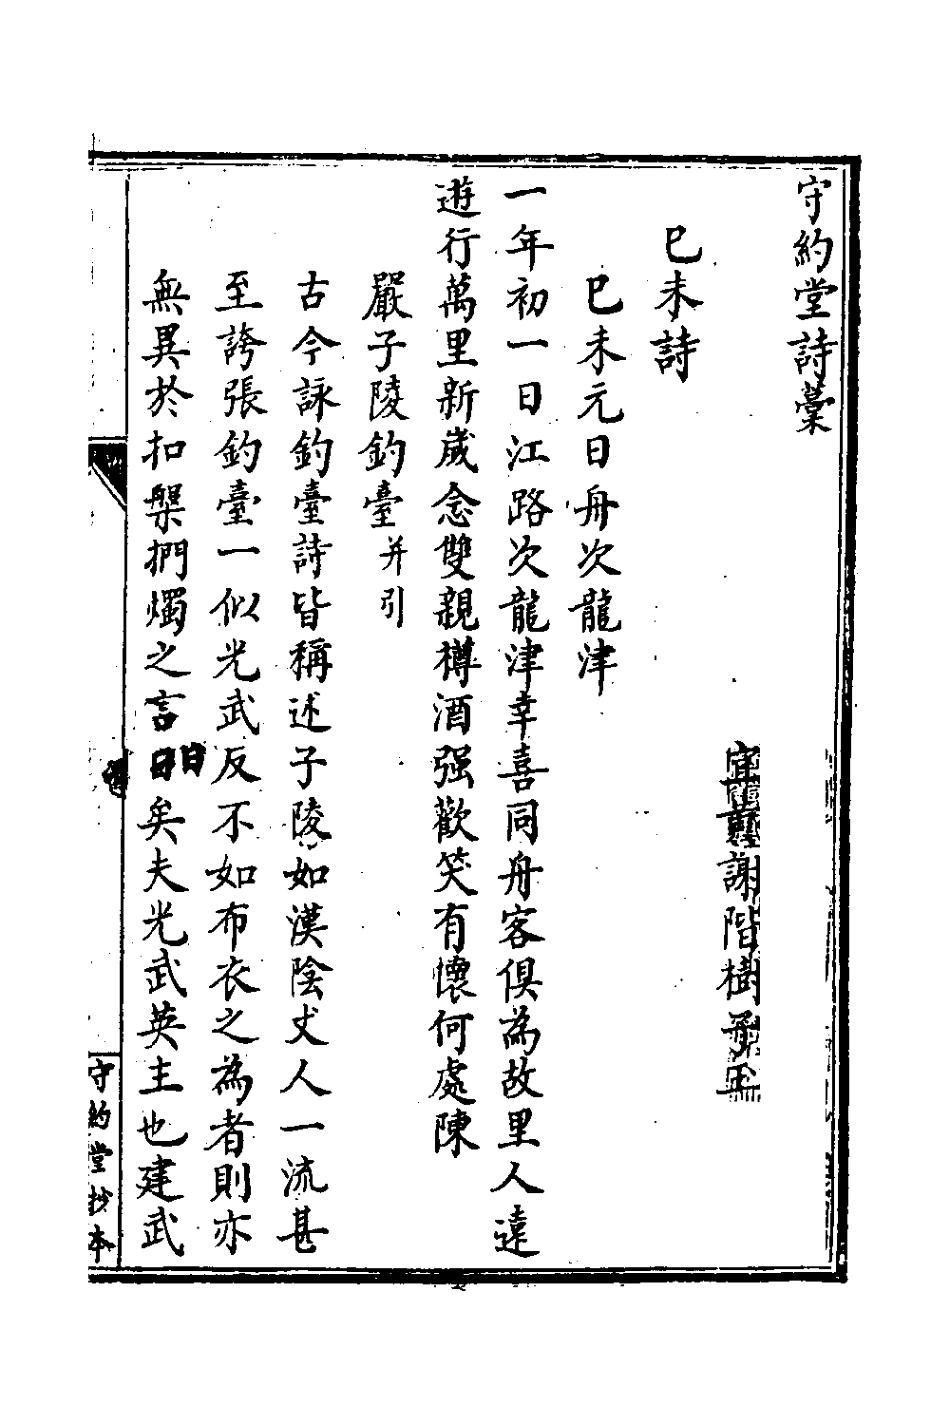 守約堂詩藁
宜黃謝階樹子玉
巳未詩
巳未元日舟次龍津
一年初一日江路次龍津幸喜同舟客俱為故里人遠
遊行萬里新歲念雙親樽酒强歡笑有懷何處陳
嚴子陵釣臺并引
古今詠釣臺詩皆稱述子陵如漢陰丈人一流甚
至誇張釣臺一似光武反不如布衣之為者則亦
無異於扣槃捫燭之言日矣夫光武英主也建武
守約堂抄本